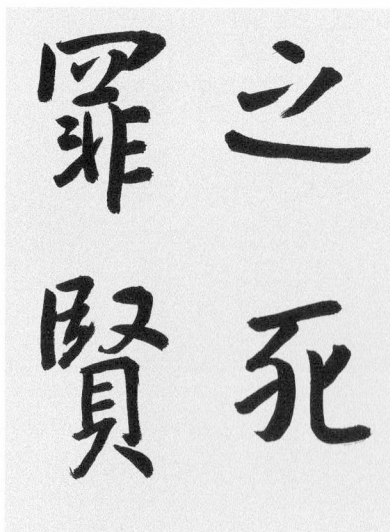 之死
罪賢